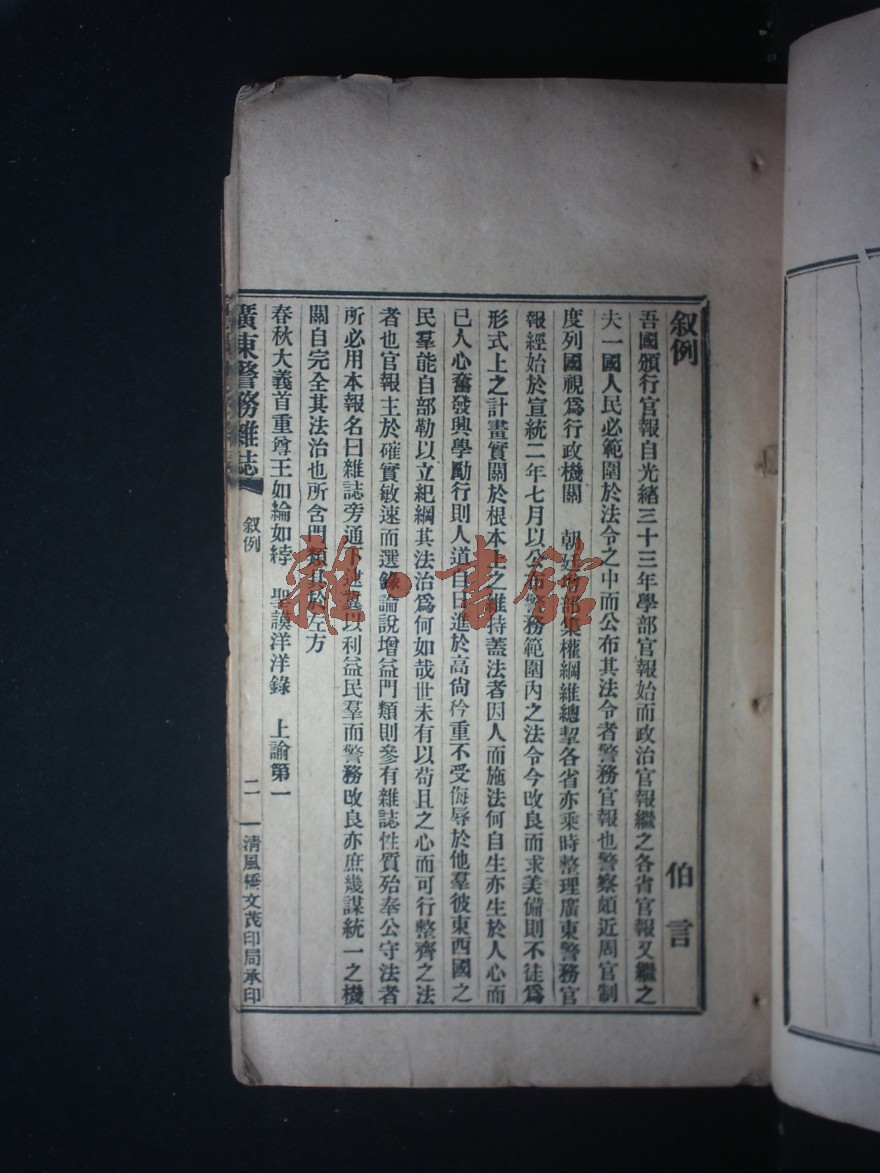 叙例
伯言
吾國頒行官報自光緒三十三年學部官報始而政治官報繼之各省官報又繼之
夫一國人民必範圍於法令之中而公布其法令者警務官報也警察頗近周官制
度列國視爲行政機關 朝廷 部集權綱維總挈各省亦乘時整理廣東警務官
報經始於宣統二年七月以公布警務範圍內之法令今改良而求美備則不徒爲
形式上之計畫實關於根本上之維持蓋法者因人而施法何自生亦生於人心而
已人心奮發興學勵行則人道自日進於高尙矜重不受侮辱於他羣彼東西國之
民羣能自部勒以立紀綱其法治爲何如哉世未有以苟且之心而可行整齊之法
者也官報主於確實敏速而選錄論說增益門類則參有雜誌性質殆奉公守法者
所必用本報名曰雜誌旁通 冀以利益民羣而警務改良亦庶幾謀統一之機
關自完全其法治也所含門類具於左方
春秋大義首重尊王如綸如綍 聖謨洋洋錄 上諭第一
廣東警務雜誌
叙例
二
清風橋文茂印局承印
雜·書館